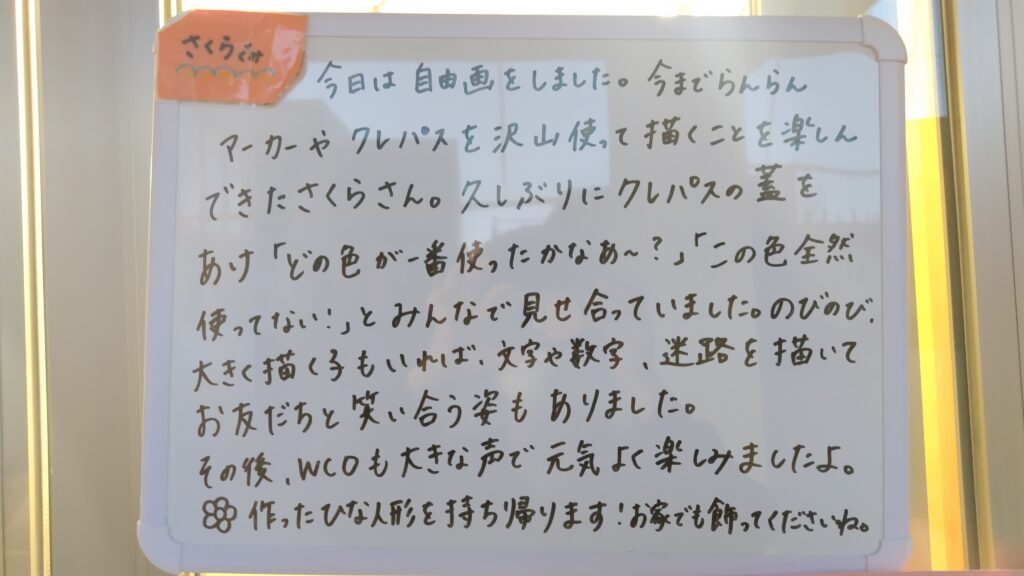 さくらぐみ
今日は自由画をしました。今までらんらん
マーカーやクレパスを沢山使って描くことを楽しん
できたさくらさん。久しぶりにクレパスの蓋を
あけ「どの色が一番使ったかなあ～?」「この色全然
使ってない!」とみんなで見せ合っていました。のびのび、
大きく描く子もいれば、文字や数字、迷路を描いて
お友だちと笑い合う姿もありました。
その後、WCOも大きな声で元気よく楽しみましたよ。
作ったひな人形を持ち帰ります!お家でも飾ってくださいね。